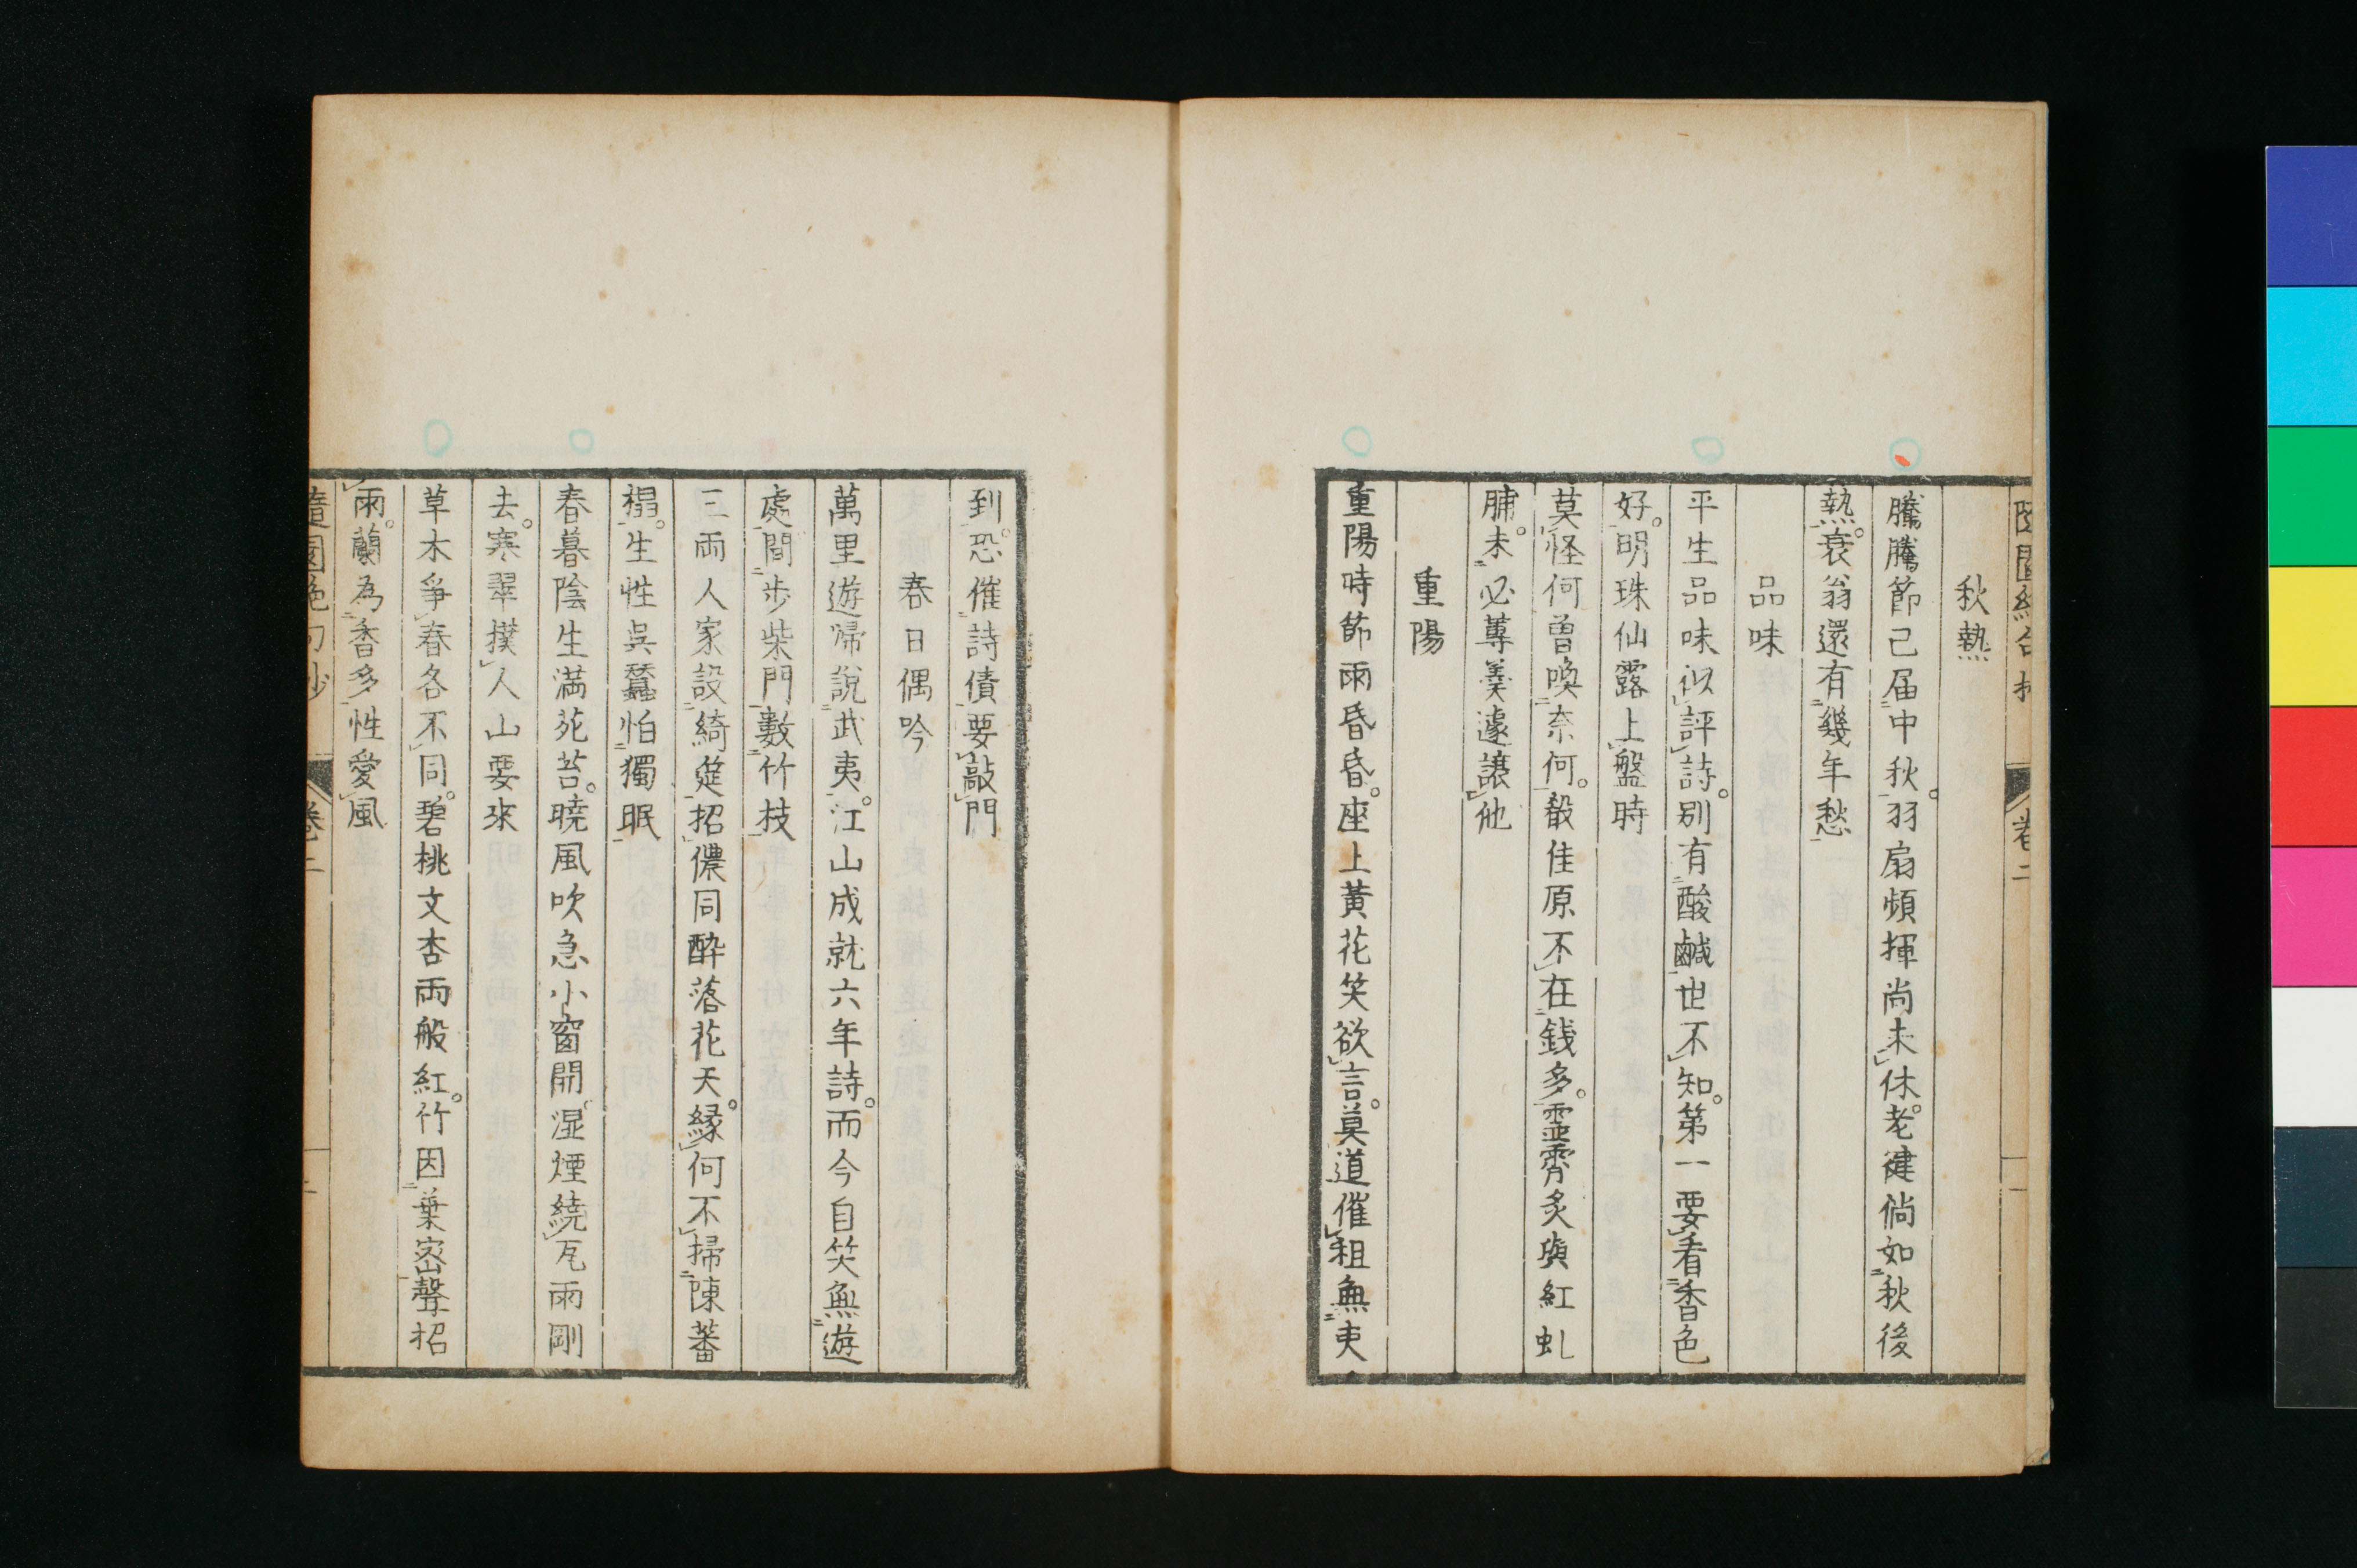 秋熱
騰騰節已届中秋。羽扇頻揮尚未休。老健倘如秋後
熱。衰翁還有幾年愁
品味
平生品味似評詩。別有酸鹹世不知。第一要看香色
好。明珠仙露上盤時
莫怪何曾喚奈何。殽佳原不在錢多。霊霄炙與紅虬
脯。未必蓴羹遽讓他
重陽
重陽時節雨昏昏。座上黃花笑欲言。莫道催租無吏
到。恐催詩債要敲門
春日偶吟
萬里遊帰說武夷。江山成就六年詩。而今自笑無遊
處。間步柴門數竹枝
三両人家設綺筵。招儂同酔落花天。縁何不掃陳蕃
榻。生性吳蠶怕獨眠
春暮陰生満苑苔。暁風吹急小窗開。湿煙繞瓦雨剛
去。寒翠撲人山要來
草木爭春各不同。碧桃文杏両般紅。竹因葉密聲招
雨。蘭為香多性愛風
隨園絶句抄
卷二